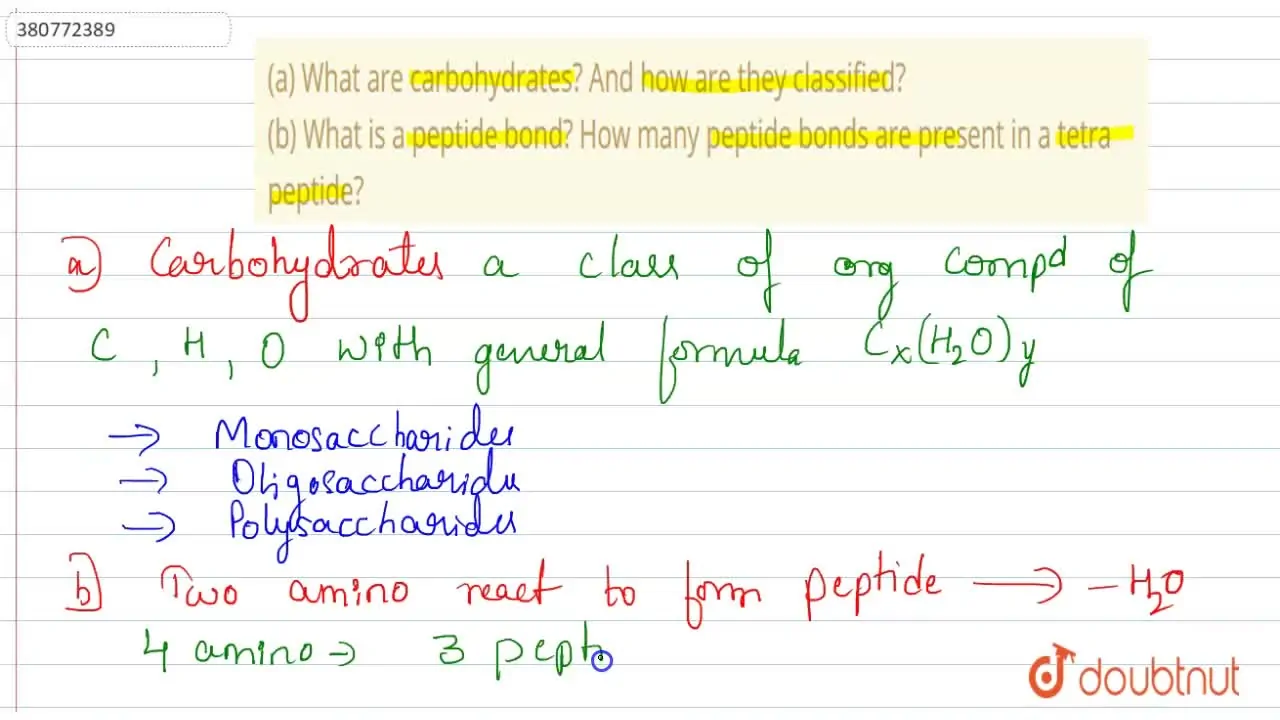 380772389
(a) What are carbohydrates? And how are they classified?
(b) What is a peptide bond? How many peptide bonds are present in a tetra
peptide?
a) Carbohydrates a class of org compd of
C, H, O with general formula Cx(H2O)y
→ Monosaccharides
→ Oligosaccharides
→ Polysaccharides
b) Two amino react to form peptide → -H2O
4 amino → 3 pept
doubtnut